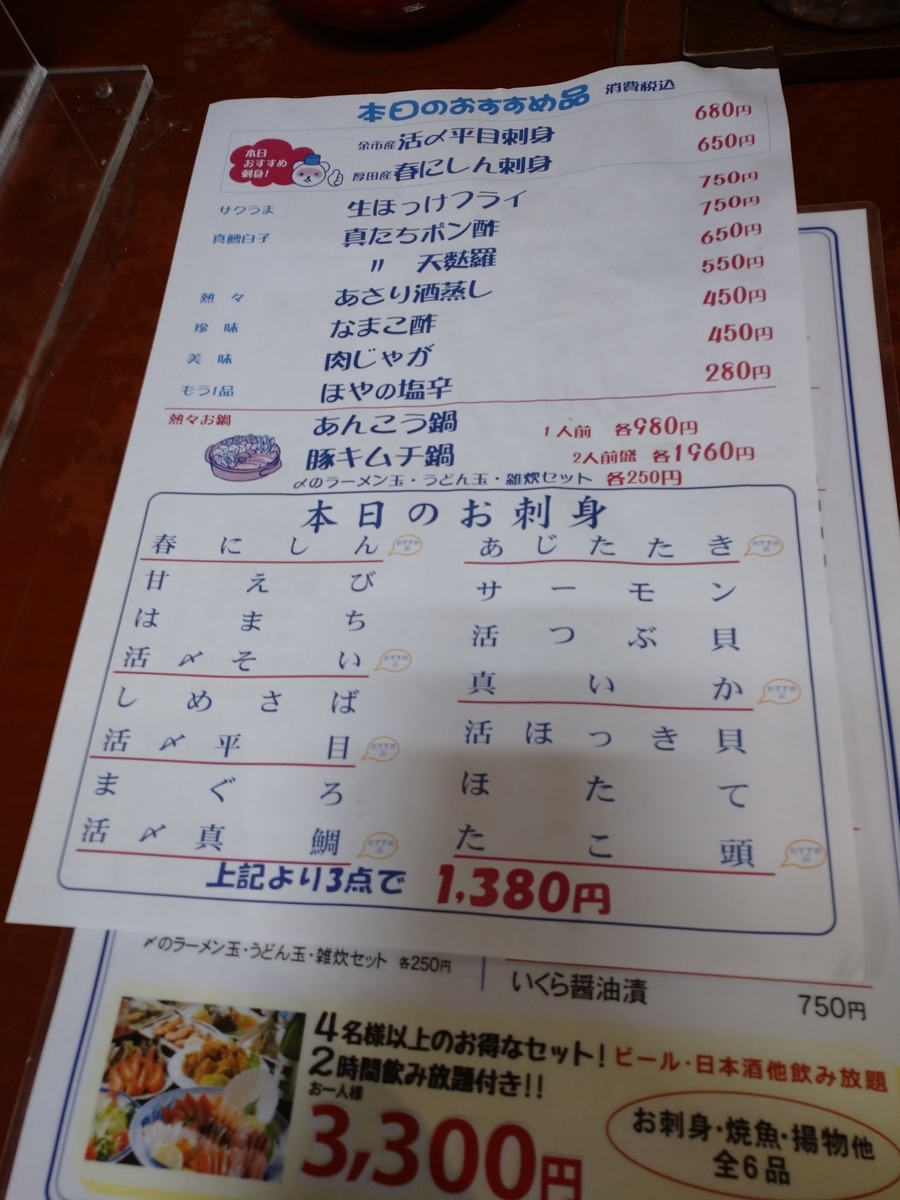 本日のおすすめ品 消費税込
本日
おすすめ
刺身!
余市産 活〆平目刺身 680円
厚田産 春にしん刺身 650円
サクうま 生ほっけフライ 750円
真鱈白子 真たちポン酢 750円
〃 天麩羅 650円
熱々 あさり酒蒸し 550円
珍味 なまこ酢 450円
美味 肉じゃが 450円
もう1品 ほやの塩辛 280円
熱々お鍋 あんこう鍋 1人前 各980円
豚キムチ鍋 2人前盛 各1960円
〆のラーメン玉・うどん玉・雑炊セット 各250円
本日のお刺身
春にしん おすすめ品 あじたたき おすすめ品
甘えび サーモン
はまち 活つぶ貝
活〆そい おすすめ品 真いか おすすめ品
しめさば 活ほっき貝
活〆平目 おすすめ品 ほたて
まぐろ たこ頭 おすすめ品
活〆真鯛 おすすめ品
上記より3点で 1,380円
〆のラーメン玉・うどん玉・雑炊セット 各250円
いくら醤油漬 750円
4名様以上のお得なセット! ビール・日本酒他飲み放題
2時間飲み放題付き!!
お一人様
3,300円
お刺身・焼魚・揚物他
全6品